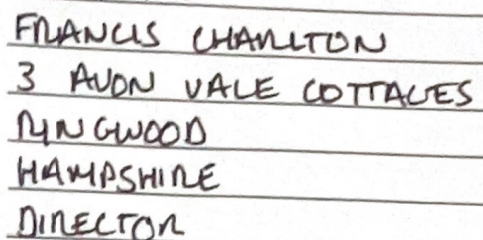 FRANCIS CHARLTON
3 AVON VALE COTTAGES
RINGWOOD
HAMPSHIRE
DIRECTOR